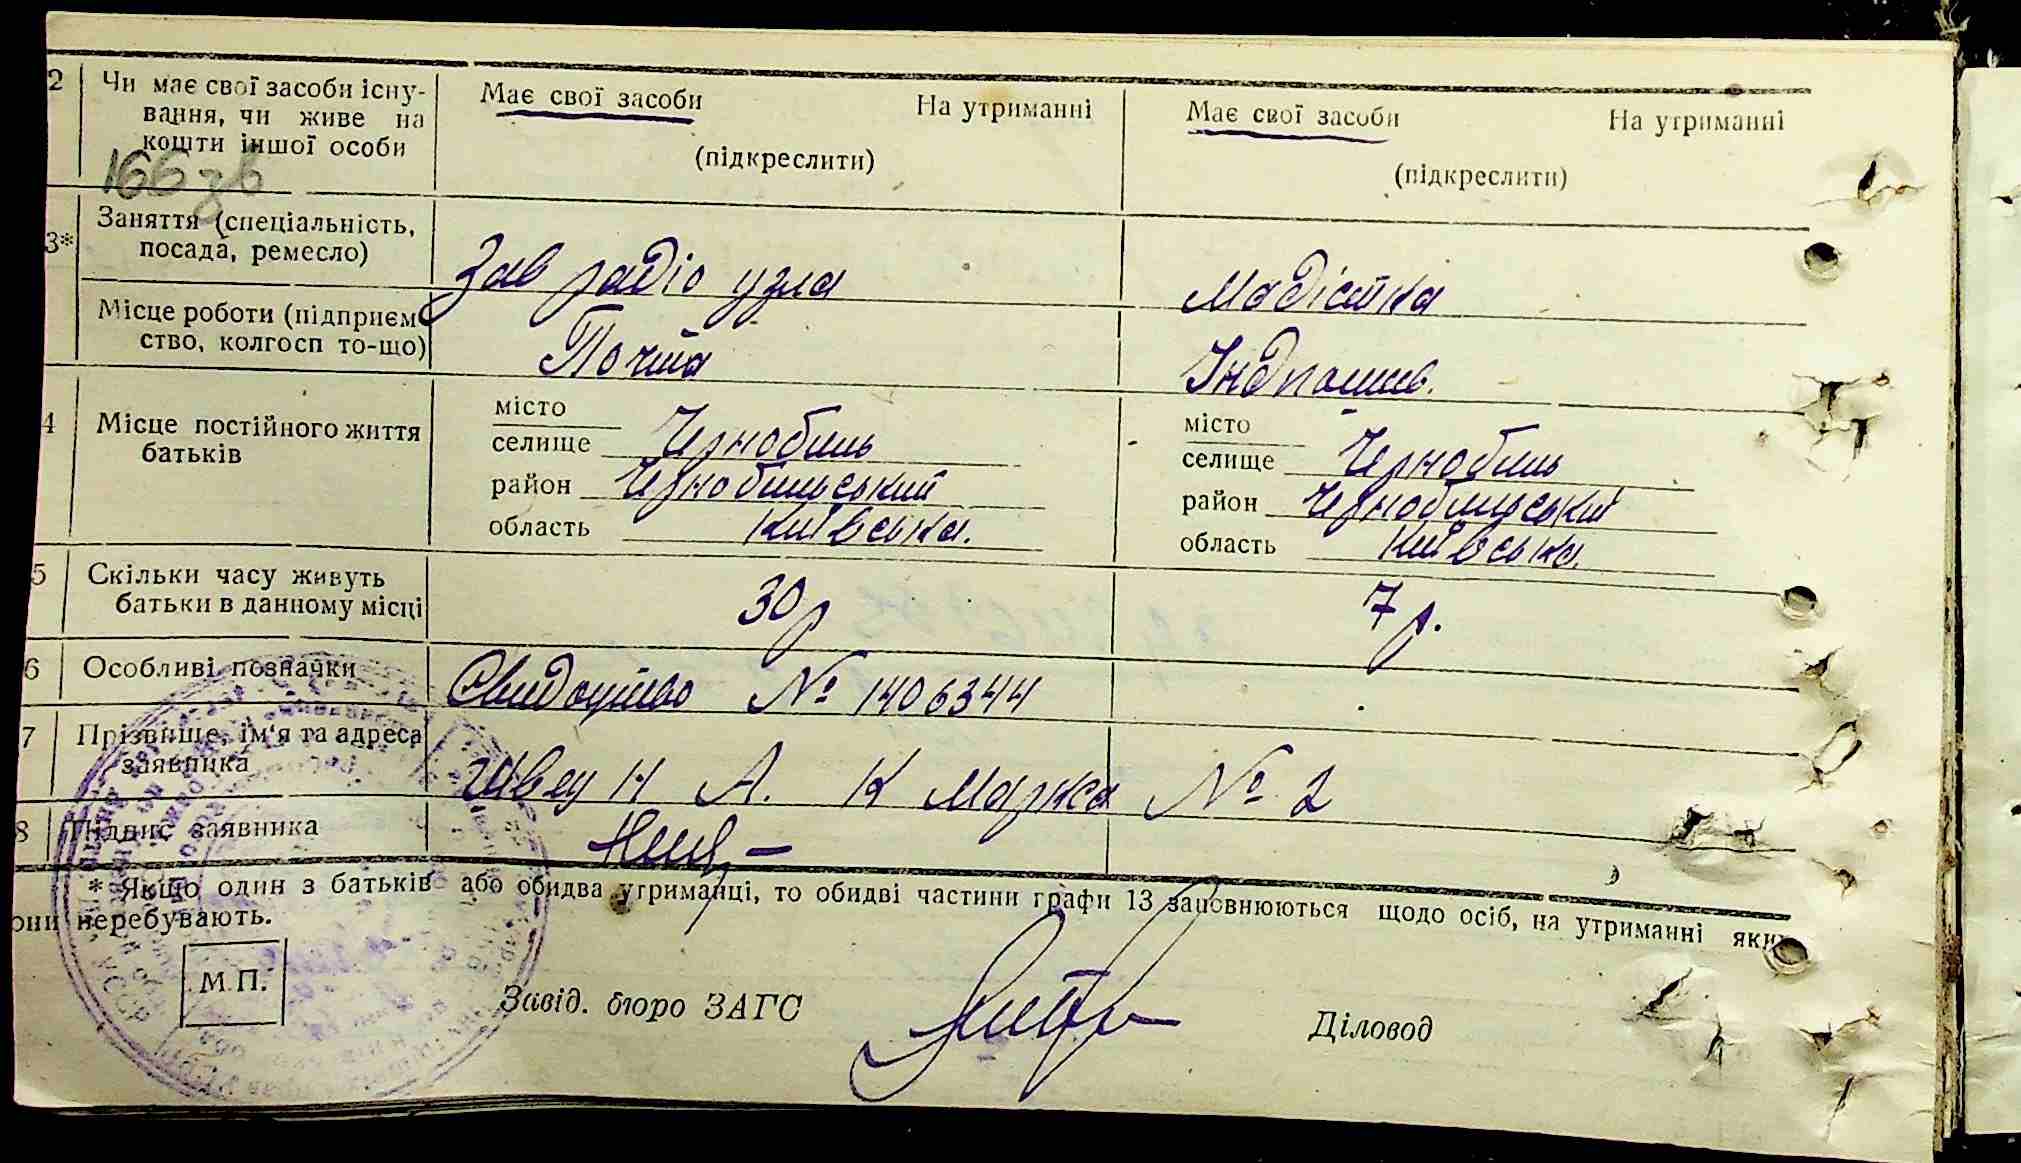 2 Чи має свої засоби існу- Має свої засоби На утриманні Має свої засоби На утриманні
вання, чи живе на
кошти іншої особи (підкреслити) (підкреслити)
166 зв
3* Заняття (спеціальність,
посада, ремесло) Зав радіо узла Модістка
Місце роботи (підприєм
ство, колгосп то-що) Почта Індпошив.
4 Місце постійного життя
батьків
місто місто
селище Чернобиль селище Чернобиль
район Чернобильський район Чернобильський
область Київська. область Київська.
5 Скільки часу живуть
батьки в данному місці 30 р 7 р.
6 Особливі позначки Свидоцтво № 1406344
7 Прізвище, ім'я та адреса
заявника Швец Н А. К Маркса № 2
8 Підпис заявника
* Якщо один з батьків або обидва утриманці, то обидві частини графи 13 заповнюються щодо осіб, на утриманні яких
они перебувають.
М.П.
Завід. бюро ЗАГС Діловод